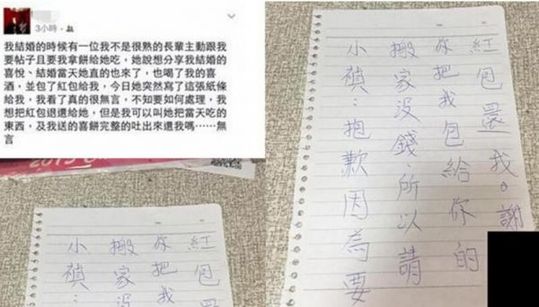 3小時
我結婚的時候有一位我不是很熟的長輩主動跟我
要帖子且要我拿餅給她吃，她說想分享我結婚的
喜悅、結婚當天她直的也來了，也喝了我的喜
酒，並包了紅包給我，今日她突然寫了這張紙條
給我，我看了真的很無言，不知要如何處理，我
想把紅包退還給她，但是我可以叫她把當天吃的
東西，及我送的喜餅完整的吐出來還我嗎⋯⋯無
言
小禎：
搬家沒
你把我
紅包還
小禎：抱歉因為要
搬家沒錢，所以請
你把我包給你的
紅包還我。謝